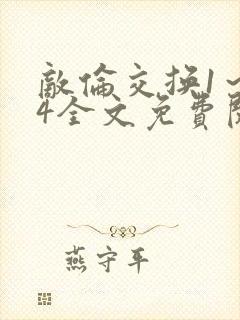 敵倫交换1~
4全文免費閱
燕守平